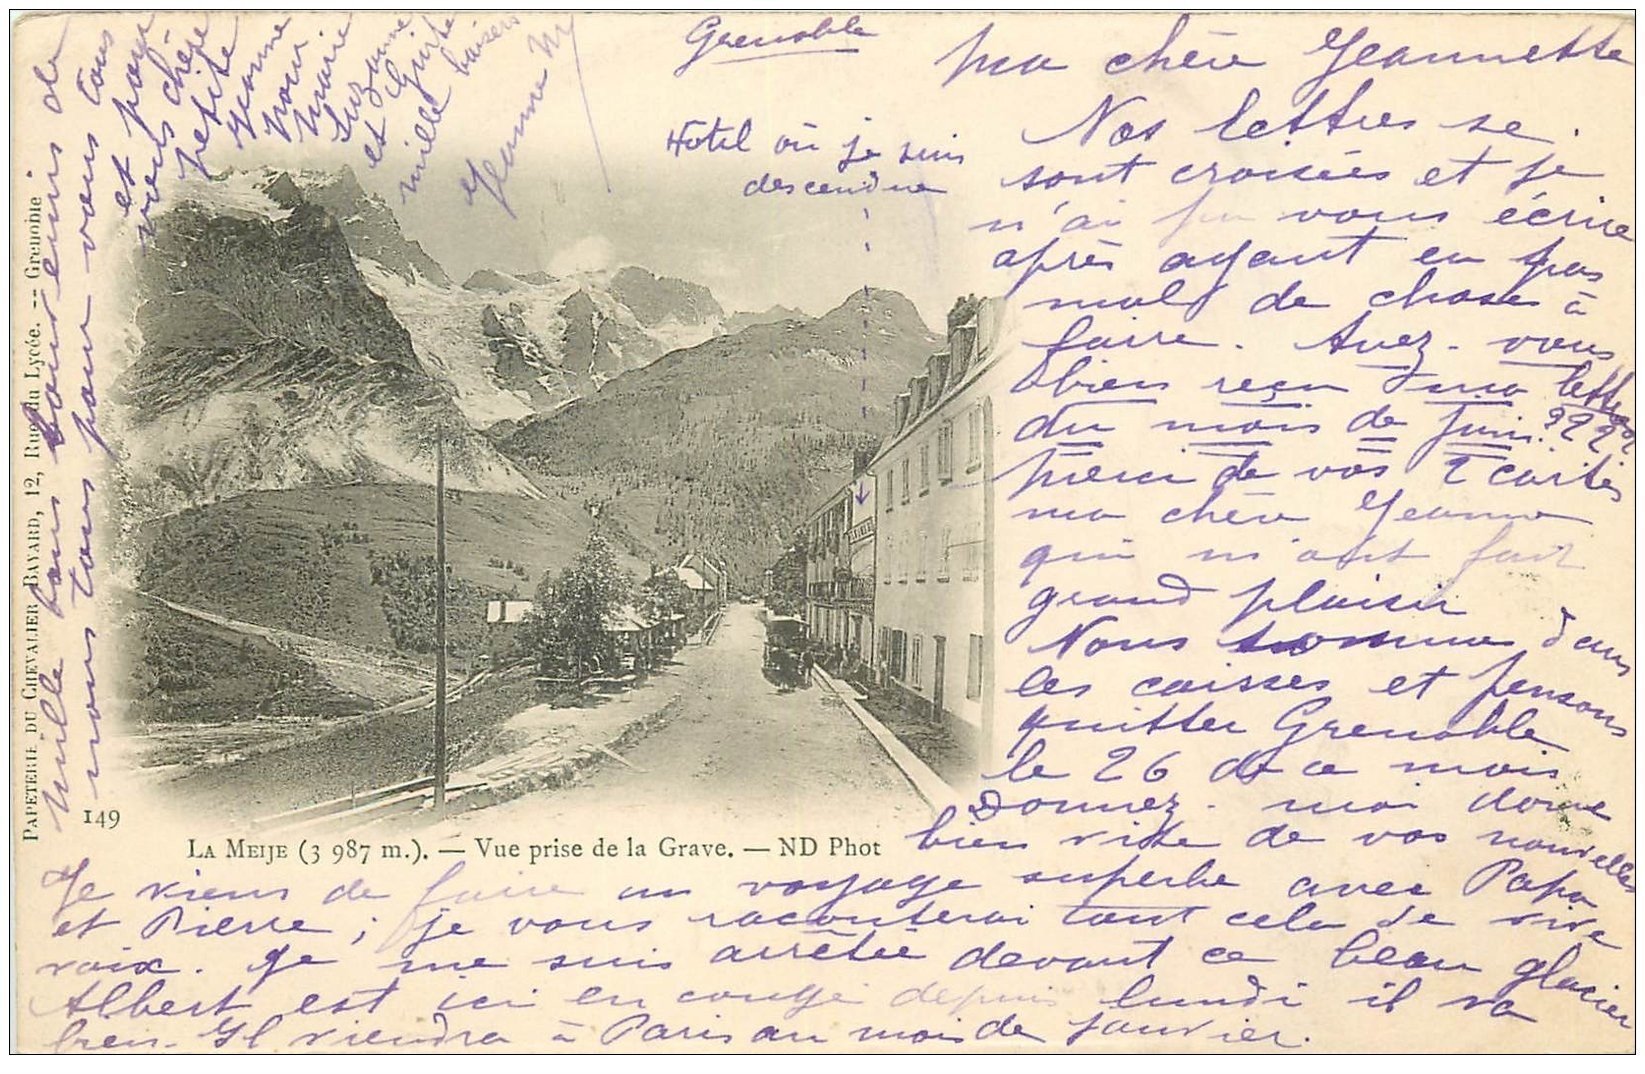 Grenoble
Hotel où je suis
descendue
Ma chère Jeannette
Nos lettres se
sont croisées et je
n'ai pu vous écrire
après ayant eu pas
mal de choses à
faire. Avez-vous
bien reçu ma lettre
du mois de Juin. ???
Merci de vos 2 cartes
ma chère Jeanne
qui m'ont fait
grand plaisir
Nous sommes dans
les caisses et pensons
quitter Grenoble
le 26 de ce mois.
Donnez-moi donc
bien vite de vos nouvelles
Je viens de faire un voyage superbe avec Papa
et Pierre ; je vous raconterai tout cela de vive
voix. Je me suis arrêtée devant ce beau glacier
Albert est ici en congé depuis lundi il va
bien. Il viendra à Paris au mois de janvier.
Mille bons souvenirs de
nous tous pour vous tous
et pour
vous chère
petite
Jeanne
Marie
Suzanne
et Guite
mille baisers
Jeanne M
PAPETERIE DU CHEVALIER BAYARD, 12, Rue du Lycée. -- Grenoble
149
LA MEIJE (3 987 m.). — Vue prise de la Grave. — ND Phot